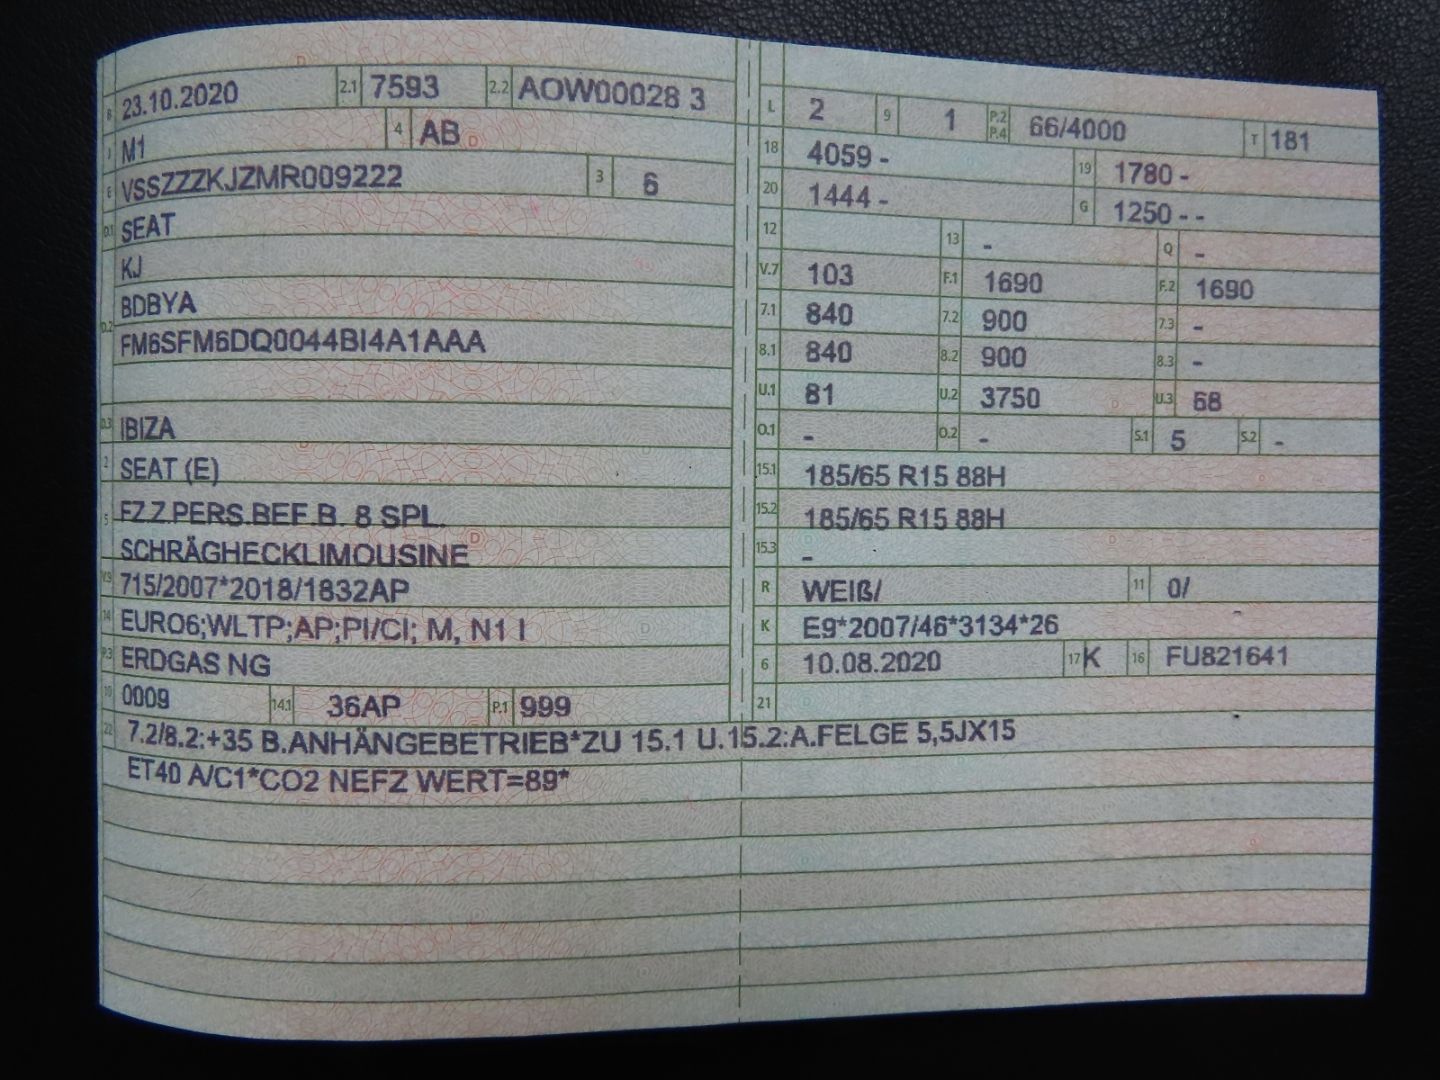 B 23.10.2020 2.1 7593 2.2 AOW00028 3
J M1 4 AB
E VSSZZZKJZMR009222 3 6
D.1 SEAT
KJ
BDBYA
D.2 FM6SFM6DQ0044BI4A1AAA
D.3 IBIZA
2 SEAT (E)
5 FZ.Z.PERS.BEF.B. 8 SPL.
SCHRÄGHECKLIMOUSINE
V.9 715/2007*2018/1832AP
14 EURO6;WLTP;AP;PI/CI; M, N1 I
P.3 ERDGAS NG
10 0009 14.1 36AP P.1 999
L 2 9 1 P.2 P.4 66/4000 T 181
18 4059 - 19 1780 -
20 1444 - G 1250 - -
12 13 - Q -
V.7 103 F.1 1690 F.2 1690
7.1 840 7.2 900 7.3 -
8.1 840 8.2 900 8.3 -
U.1 81 U.2 3750 U.3 68
O.1 - O.2 - S.1 5 S.2 -
15.1 185/65 R15 88H
15.2 185/65 R15 88H
15.3 -
R WEIß/ 11 0/
K E9*2007/46*3134*26
6 10.08.2020 17 K 16 FU821641
21
22 7.2/8.2:+35 B.ANHÄNGEBETRIEB*ZU 15.1 U.15.2:A.FELGE 5,5JX15
ET40 A/C1*CO2 NEFZ WERT=89*